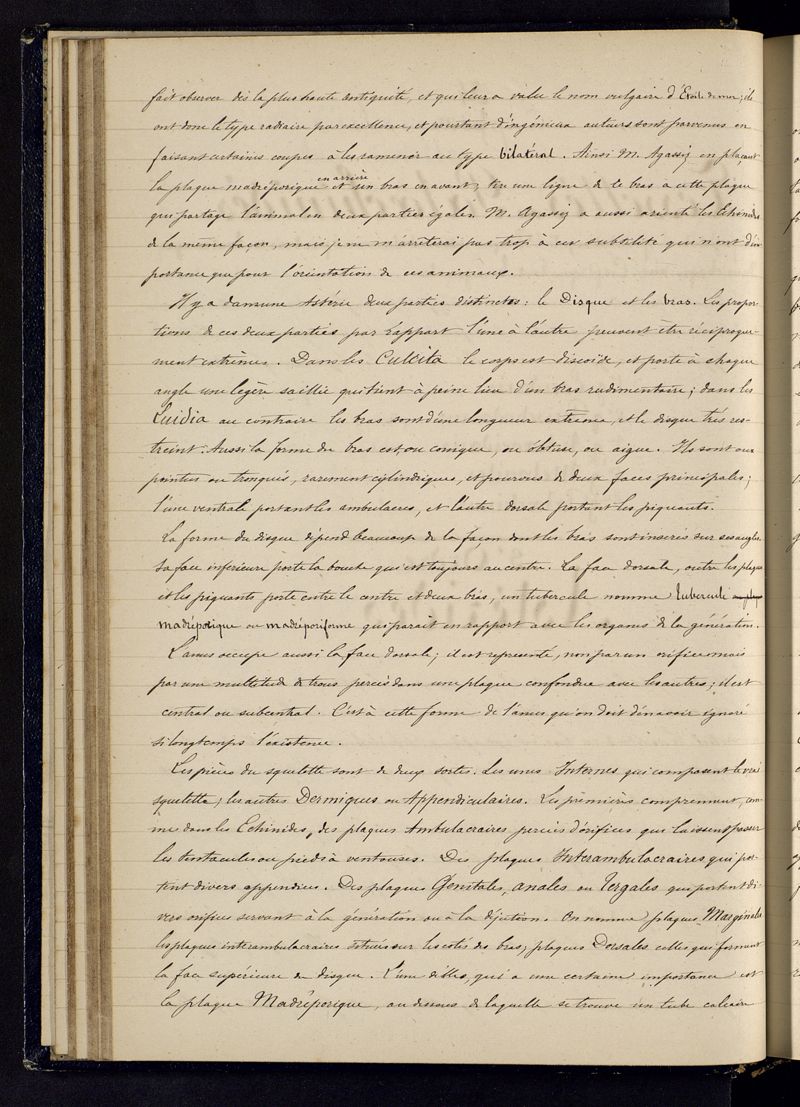 fait observer dès la plus haute antiquité, et qui leur a valu le nom vulgaire d'Étoile de mer; ils
ont donc le type radiaire par excellence, et pourtant d'ingénieux auteurs sont parvenus en
faisant certaines coupes à les ramener au type bilatéral. Ainsi M. Agassiz en plaçant
la plaque madréporique en arrière et un bras en avant, tire une ligne de ce bras à cette plaque
qui partage l'animal en deux parties égales. M. Agassiz a aussi orienté les Echinides
de la même façon, mais je ne m'arrêterai pas trop à ces subtilité qui n'ont d'im
portance que pour l'orientation de ces animaux.
Il y a dans une Astérie deux parties distinctes: le Disque et les bras. Les propor-
tions de ces deux parties par rapport l'une à l'autre peuvent être réciproque-
ment extrêmes. Dans les Culcita le corps est discoïde, et porte à chaque
angle une légère saillie qui tient à peine lieu d'un bras rudimentaire; dans les
Luidia au contraire les bras sont d'une longueur extrême, et le disque très res-
treint. Aussi la forme du bras est ou conique, ou obtuse, ou aigue. Ils sont ou
pointus ou tronqués, rarement cylindriques, et pourvus de deux faces principales;
l'une ventrale portant les ambulacres, et l'autre dorsale portant les piquants.
La forme du disque dépend beaucoup de la façon dont les bras sont inserés sur ses angles.
Sa face inférieure porte la bouche qui est toujours au centre. La face dorsale, outre les plaques
et les piquants porte entre le centre et deux bras, un tubercule nommé tubercule
madréporique ou madréporiforme qui parait en rapport avec les organes de la génération.
L'anus occupe aussi la face dorsale; il est représenté, non par un orifice mais
par une multitude de trous percés dans une plaque confondue avec les autres; il est
central ou subcentral. C'est à cette forme de l'anus qu'on doit d'en avoir ignoré
si longtemps l'existence.
Les pièces du squelette sont de deux sortes. Les unes Internes qui composent le vrai
squelette; les autres Dermiques ou Appendiculaires. Les premières comprennent, com-
me dans les Echinides, des plaques Ambulacraires percées d'orifices qui laissent passer
les tentacules ou pieds à ventouses. Des plaques Interambulacraires qui por-
tent divers appendices. Des plaques Génitales, anales ou Tergales qui portent di-
vers orifices servant à la génération ou à la déjection. On nomme plaques Marginales
les plaques interambulacraires situées sur les cotés des bras; plaques Dorsales celles qui forment
la face supérieure du disque. L'une d'elles, qui a une certaine importance est
la plaque Madréporique, au dessous de laquelle se trouve un tube calcaire